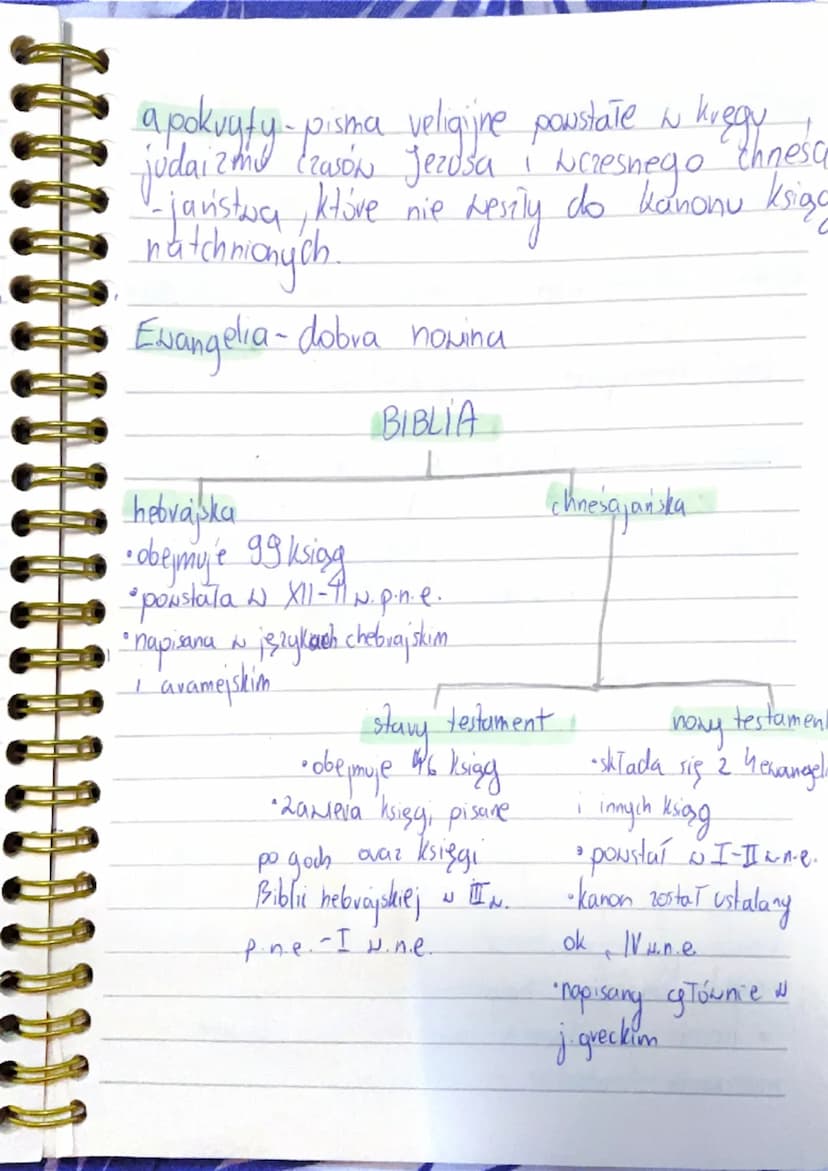 apokryfy - pisma religijne powstałe w kręgu
judaizmu czasów Jezusa i wczesnego chrześci
-jaństwa, które nie weszły do kanonu ksiąg
natchnionych.
Ewangelia - dobra nowina
BIBLIA
hebrajska
• obejmuje 99 ksiąg
• powstała w XII-II w. p.n.e.
• napisana w językach chebrajskim
i aramejskim
chrześcijańska
stary testament
• obejmuje 46 ksiąg
• zawiera księgi pisane
po grch oraz księgi
Biblii hebrajskiej w III w.
p.n.e. - I w.n.e.
nowy testamen
• składa się z 4 ewangeli
i innych ksiąg
• powstał w I-II w n.e.
• kanon został ustalany
ok. IV w.n.e.
• napisany głównie w
j. greckim